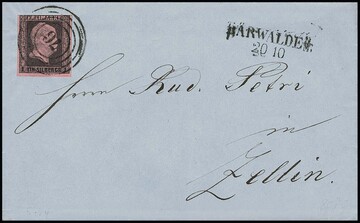 FREIMARKE
1 SILBERGR.
BÄRWALDE
20 10
Herrn Rud. Petri
in
Zellin.